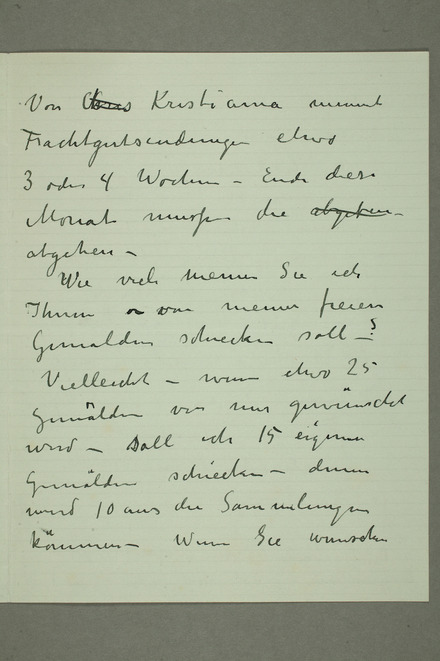 Von Chris Kristiania nimmt
Frachtgutsendungen etwa
3 oder 4 Wochen – Ende diese
Monat mussen die abgehen –
abgehen –
Wie viele meinen Sie ich
Ihnen von meinen freien
Gemälden schicken soll – ?
Vielleicht – wenn etwa 25
Gemälden von mir gewünscht
wird – Soll ich 15 eigenen
Gemälden schicken – dann
wird 10 aus die Sammlungen
kommen – Wenn Sie wunschen